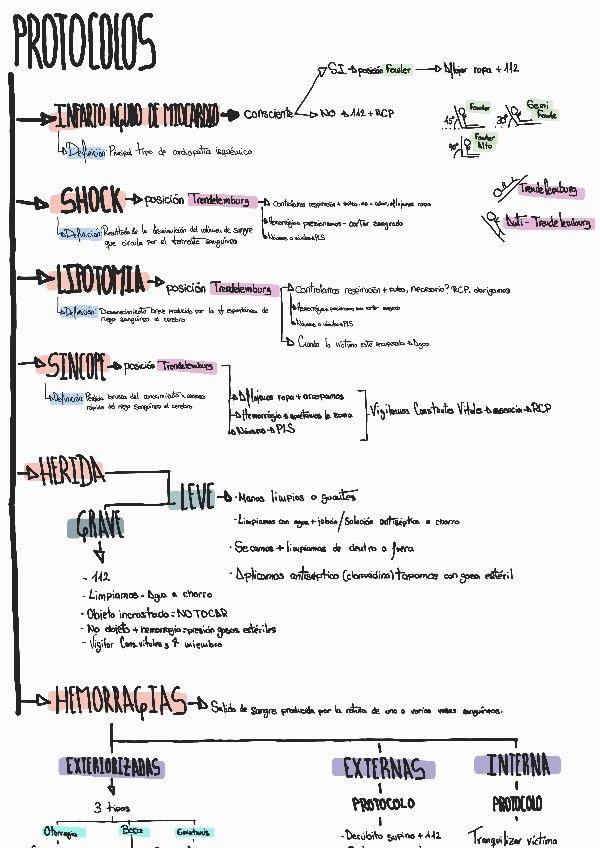 PROTOCOLOS
SI → posición Fowler → Aflojar ropa + 112
INFARTO AGUDO DE MIOCARDIO → consciente
NO → 112 + RCP
Definición: Principal tipo de cardiopatía isquémica
45° Fowler
30° Semi Fowler
90° Fowler Alto
SHOCK → posición Trendelemburg → Controlamos respiración + pulso, aflojamos ropa
Hemorrágia presionamos - cortar sangrado
Náuseas o vómitos PLS
Definición: Resultado de la disminución del volumen de sangre
que circula por el torrente sanguíneo
Trendelemburg
Anti - Trendelemburg
LIPOTOMIA → posición Trendelemburg → Controlamos respiración + pulso, necesario? RCP. abrigamos
Hemorrágia presionamos cortar sangrado
Náuseas o vómitos PLS
Cuando la víctima esté recuperada → Agua
Definición: Desvanecimiento breve producido por la ↓ espontánea de
riego sanguíneo al cerebro
SINCOPE → posición Trendelemburg
Definición: Pérdida brusca del conocimiento
rápida del riego sanguíneo al cerebro
Aflojamos ropa + arropamos
Hemorrágia → apretamos la zona
Náuseas → PLS
Vigilamos Constantes Vitales → ausencia → RCP
HERIDA
LEVE → - Manos limpias o guantes
- Limpiamos con agua + jabón / Solución antiséptica a chorro
- Secamos + limpiamos de dentro a fuera
- Aplicamos antiséptico (cloroxidina) tapamos con gasa estéril
GRAVE
- 112
- Limpiamos - Agua a chorro
- Objeto incrostado = NO TOCAR
- No objeto + hemorragia = presión gasas estériles
- Vigilar Cons. vitales y ↑ miembro
HEMORRAGIAS → Salida de sangre producida por la rotura de uno o varios vasos sanguíneos.
EXTERIORIZADAS
EXTERNAS
INTERNA
3 tipos
PROTOCOLO
PROTOCOLO
Otorragia
Boca
Epistaxis
- Decúbito supino + 112
Tranquilizar víctima